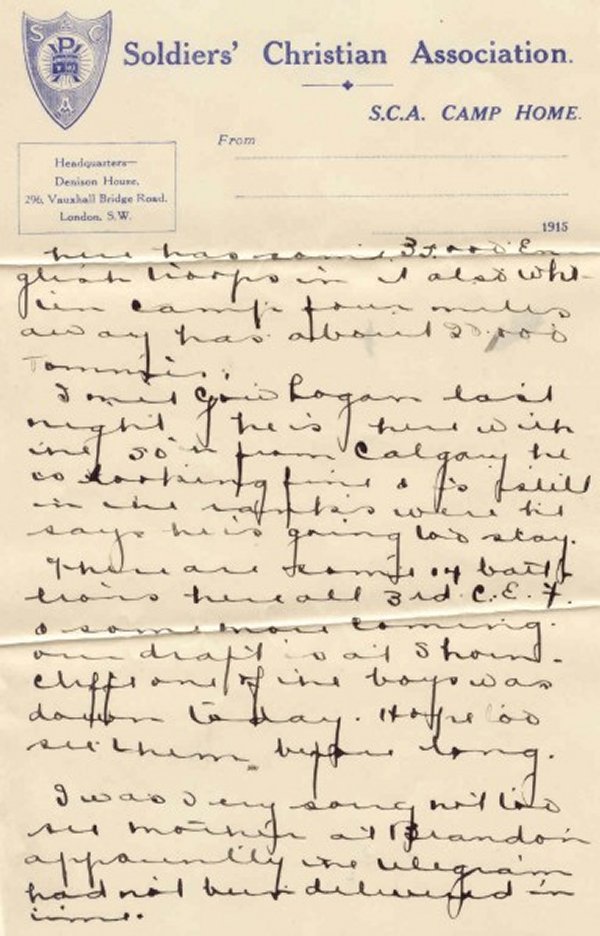 S C A
P
Soldiers' Christian Association.
S.C.A. CAMP HOME.
From
Headquarters—
Denison House,
296, Vauxhall Bridge Road,
London, S.W.
1915
here has some 35.000 En
glish troops in it also Whi-
ien camp four miles
away has about 20.000
Tommies.
I met Logan last
night he is here with
the 50th from Calgary he
is looking fine & is still
in the ranks were he
says he is going too stay.
There are some 14 batt
lions here all 3rd C.E.F.
& some more coming.
our draft is at Shorn-
cliffe one of the boys was
down to day. Hope too
see them before long.
I was very sorry not too
see mother at Brandon
apparently the telegram
had not been delivered in
time.